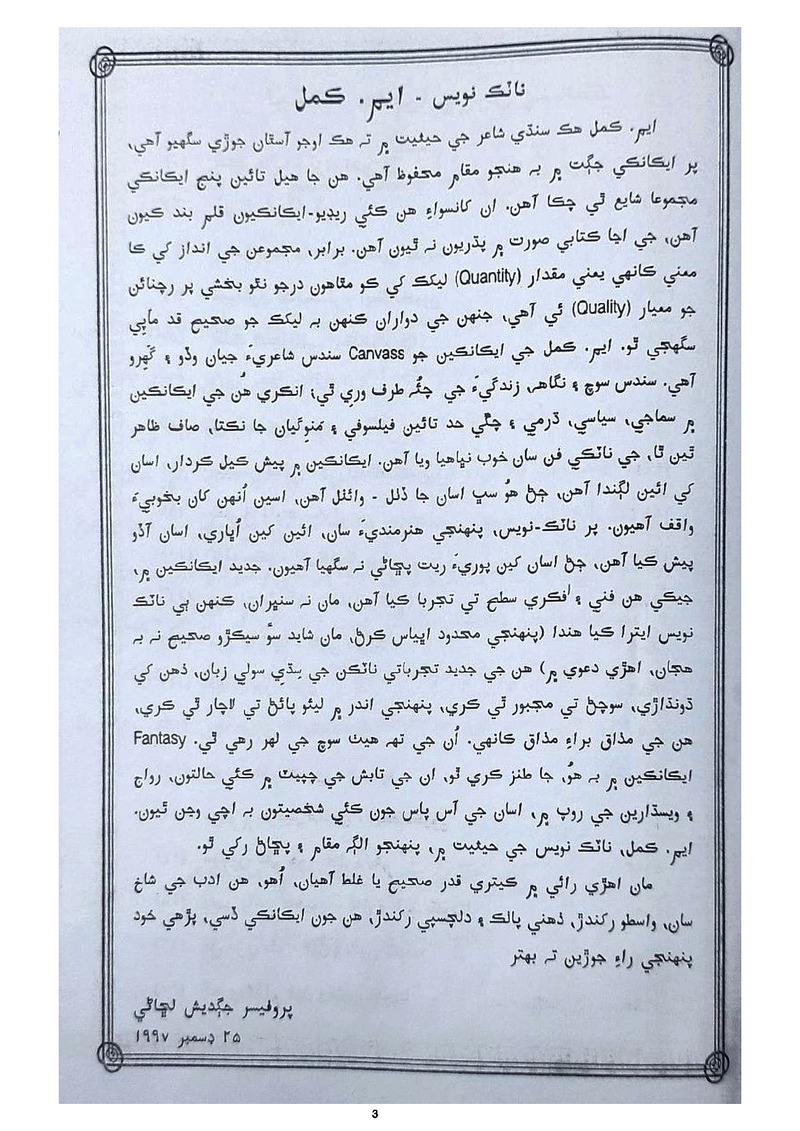 ناٽڪ نويس - ايم. ڪمل
ايم. ڪمل هڪ سنڌي شاعر جي حيثيت ۾ تہ هڪ اوچو آستان جوڙي سگهيو آهي،
پر ايڪانڪي جڳت ۾ بہ هنجو مقام محفوظ آهي. هن جا هيل تائين پنج ايڪانڪي
مجموعا شايع ٿي چڪا آهن. ان کانسواءِ هن ڪئي ريڊيو-ايڪانڪيون قلم بند ڪيون
آهن، جي اڃا ڪتابي صورت ۾ پڌريون نہ ٿيون آهن. برابر، مجموعن جي انداز کي ڪا
معني ڪانهي يعني مقدار (Quantity) ليکڪ کي ڪو مٿاهون درجو نٿو بخشي پر رچنائن
جو معيار (Quality) ئي آهي، جنهن جي دواران ڪنهن بہ ليکڪ جو صحيح قد ماپي
سگهجي ٿو. ايم. ڪمل جي ايڪانڪين جو Canvass سندس شاعريءَ جيان وڏو ۽ گهرو
آهي. سندس سوچ ۽ نگاهہ، زندگيءَ جي چئُہ طرف وري ٿي؛ انڪري هُن جي ايڪانڪين
۾ سماجي، سياسي، ڌرمي ۽ چڱي حد تائين فيلسوفي ۽ مَنوِگيان جا نڪتا، صاف ظاهر
ٿين ٿا، جي ناٽڪي فن سان خوب نڀاهيا ويا آهن. ايڪانڪين ۾ پيش ڪيل ڪردار، اسان
کي ائين لڳندا آهن، ڄڻ هُو سڀ اسان جا ڏٺل - وائٺل آهن، اسين اُنهن کان بخوبيءَ
واقف آهيون. پر ناٽڪ-نويس، پنهنجي هنرمنديءَ سان، ائين کين اُڀاري، اسان آڏو
پيش ڪيا آهن، ڄڻ اسان کين پوريءَ ريت پڇاڻي نہ سگهيا آهيون. جديد ايڪانڪين ۾،
جيڪي هن فني ۽ فڪري سطح تي تجربا ڪيا آهن، مان نہ سنڀران، ڪنهن ٻي ناٽڪ
نويس ايترا ڪيا هندا (پنهنجي محدود اڀياس ڪرڻ، مان شايد سؤ سيڪڙو صحيح نہ بہ
هجان، اهڙي دعوي ۾) هن جي جديد تجرباتي ناٽڪن جي سِڌي سولي زبان، ذهن کي
ڌونڌاڙي، سوچڻ تي مجبور ٿي ڪري، پنهنجي اندر ۾ ليئو پائڻ تي لاچار ٿي ڪري،
هن جي مذاق براءِ مذاق ڪانهي. اُن جي تہہ هيٺ سوچ جي لهر رهي ٿي. Fantasy
ايڪانڪين ۾ بہ هُو، جا طنز ڪري ٿو، ان جي تابش جي چپيٽ ۾ ڪئي حالتون، رواج
۽ ويسڌارين جي روپ ۾، اسان جي آس پاس جون ڪئي شخصيتون بہ اچي وڃن ٿيون.
ايم. ڪمل، ناٽڪ نويس جي حيثيت ۾، پنهنجو الڳہ مقام ۽ پڇاڻ رکي ٿو.
مان اهڙي رائي ۾ ڪيتري قدر صحيح يا غلط آهيان، اُهو، هن ادب جي شاخ
سان، واسطو رکندڙ، ذهني پالڪ ۽ دلچسپي رکندڙ، هن جون ايڪانڪي ڏسي، پڙهي خود
پنهنجي راءِ جوڙين تہ بهتر
پروفيسر جڳديش لڇاڻي
٢٥ ڊسمبر ١٩٩٧
3